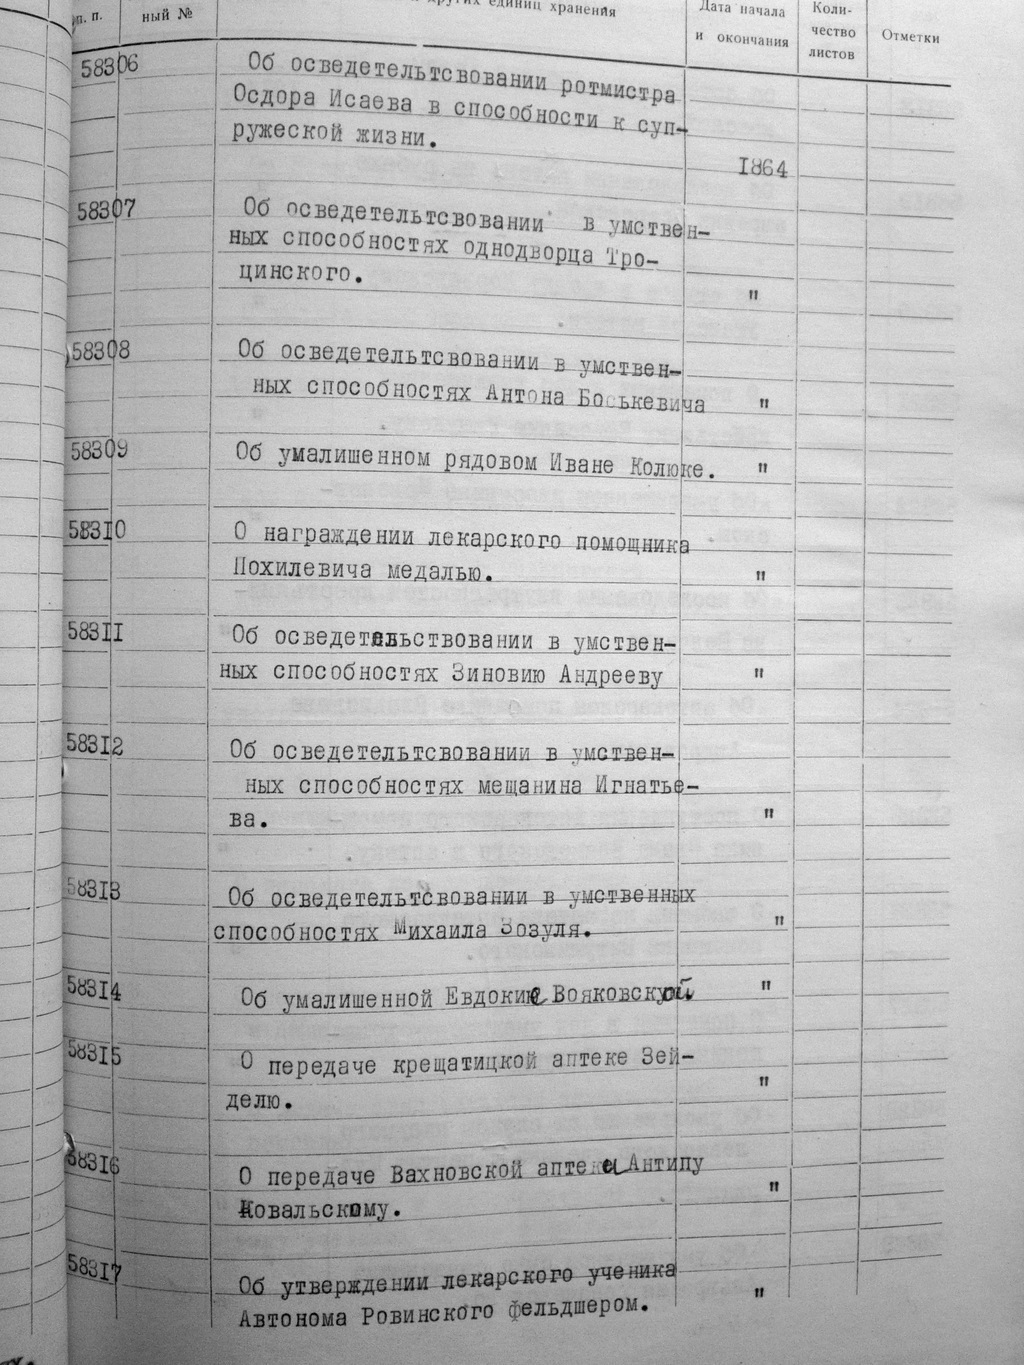 п. п.
ный №
других единиц хранения
Дата начала
и окончания
Коли-
чество
листов
Отметки
58306
Об осведетельтсвовании ротмистра
Осдора Исаева в способности к суп-
ружеской жизни.
1864
58307
Об осведетельтсвовании в умствен-
ных способностях однодворца Тро-
цинского.
"
58308
Об осведетельтсвовании в умствен-
ных способностях Антона Боськевича "
58309
Об умалишенном рядовом Иване Колюке. "
58310
О награждении лекарского помощника
Похилевича медалью. "
58311
Об осведетельствовании в умствен-
ных способностях Зиновию Андрееву "
58312
Об осведетельтсвовании в умствен-
ных способностях мещанина Игнатье-
ва. "
58313
Об осведетельтсвовании в умственных
способностях Михаила Зозуля. "
58314
Об умалишенной Евдокие Вояковской "
58315
О передаче крещатицкой аптеке Зей-
делю. "
58316
О передаче Вахновской аптеки Антипу
Ковальскому. "
58317
Об утверждении лекарского ученика
Автонома Ровинского фельдшером. "